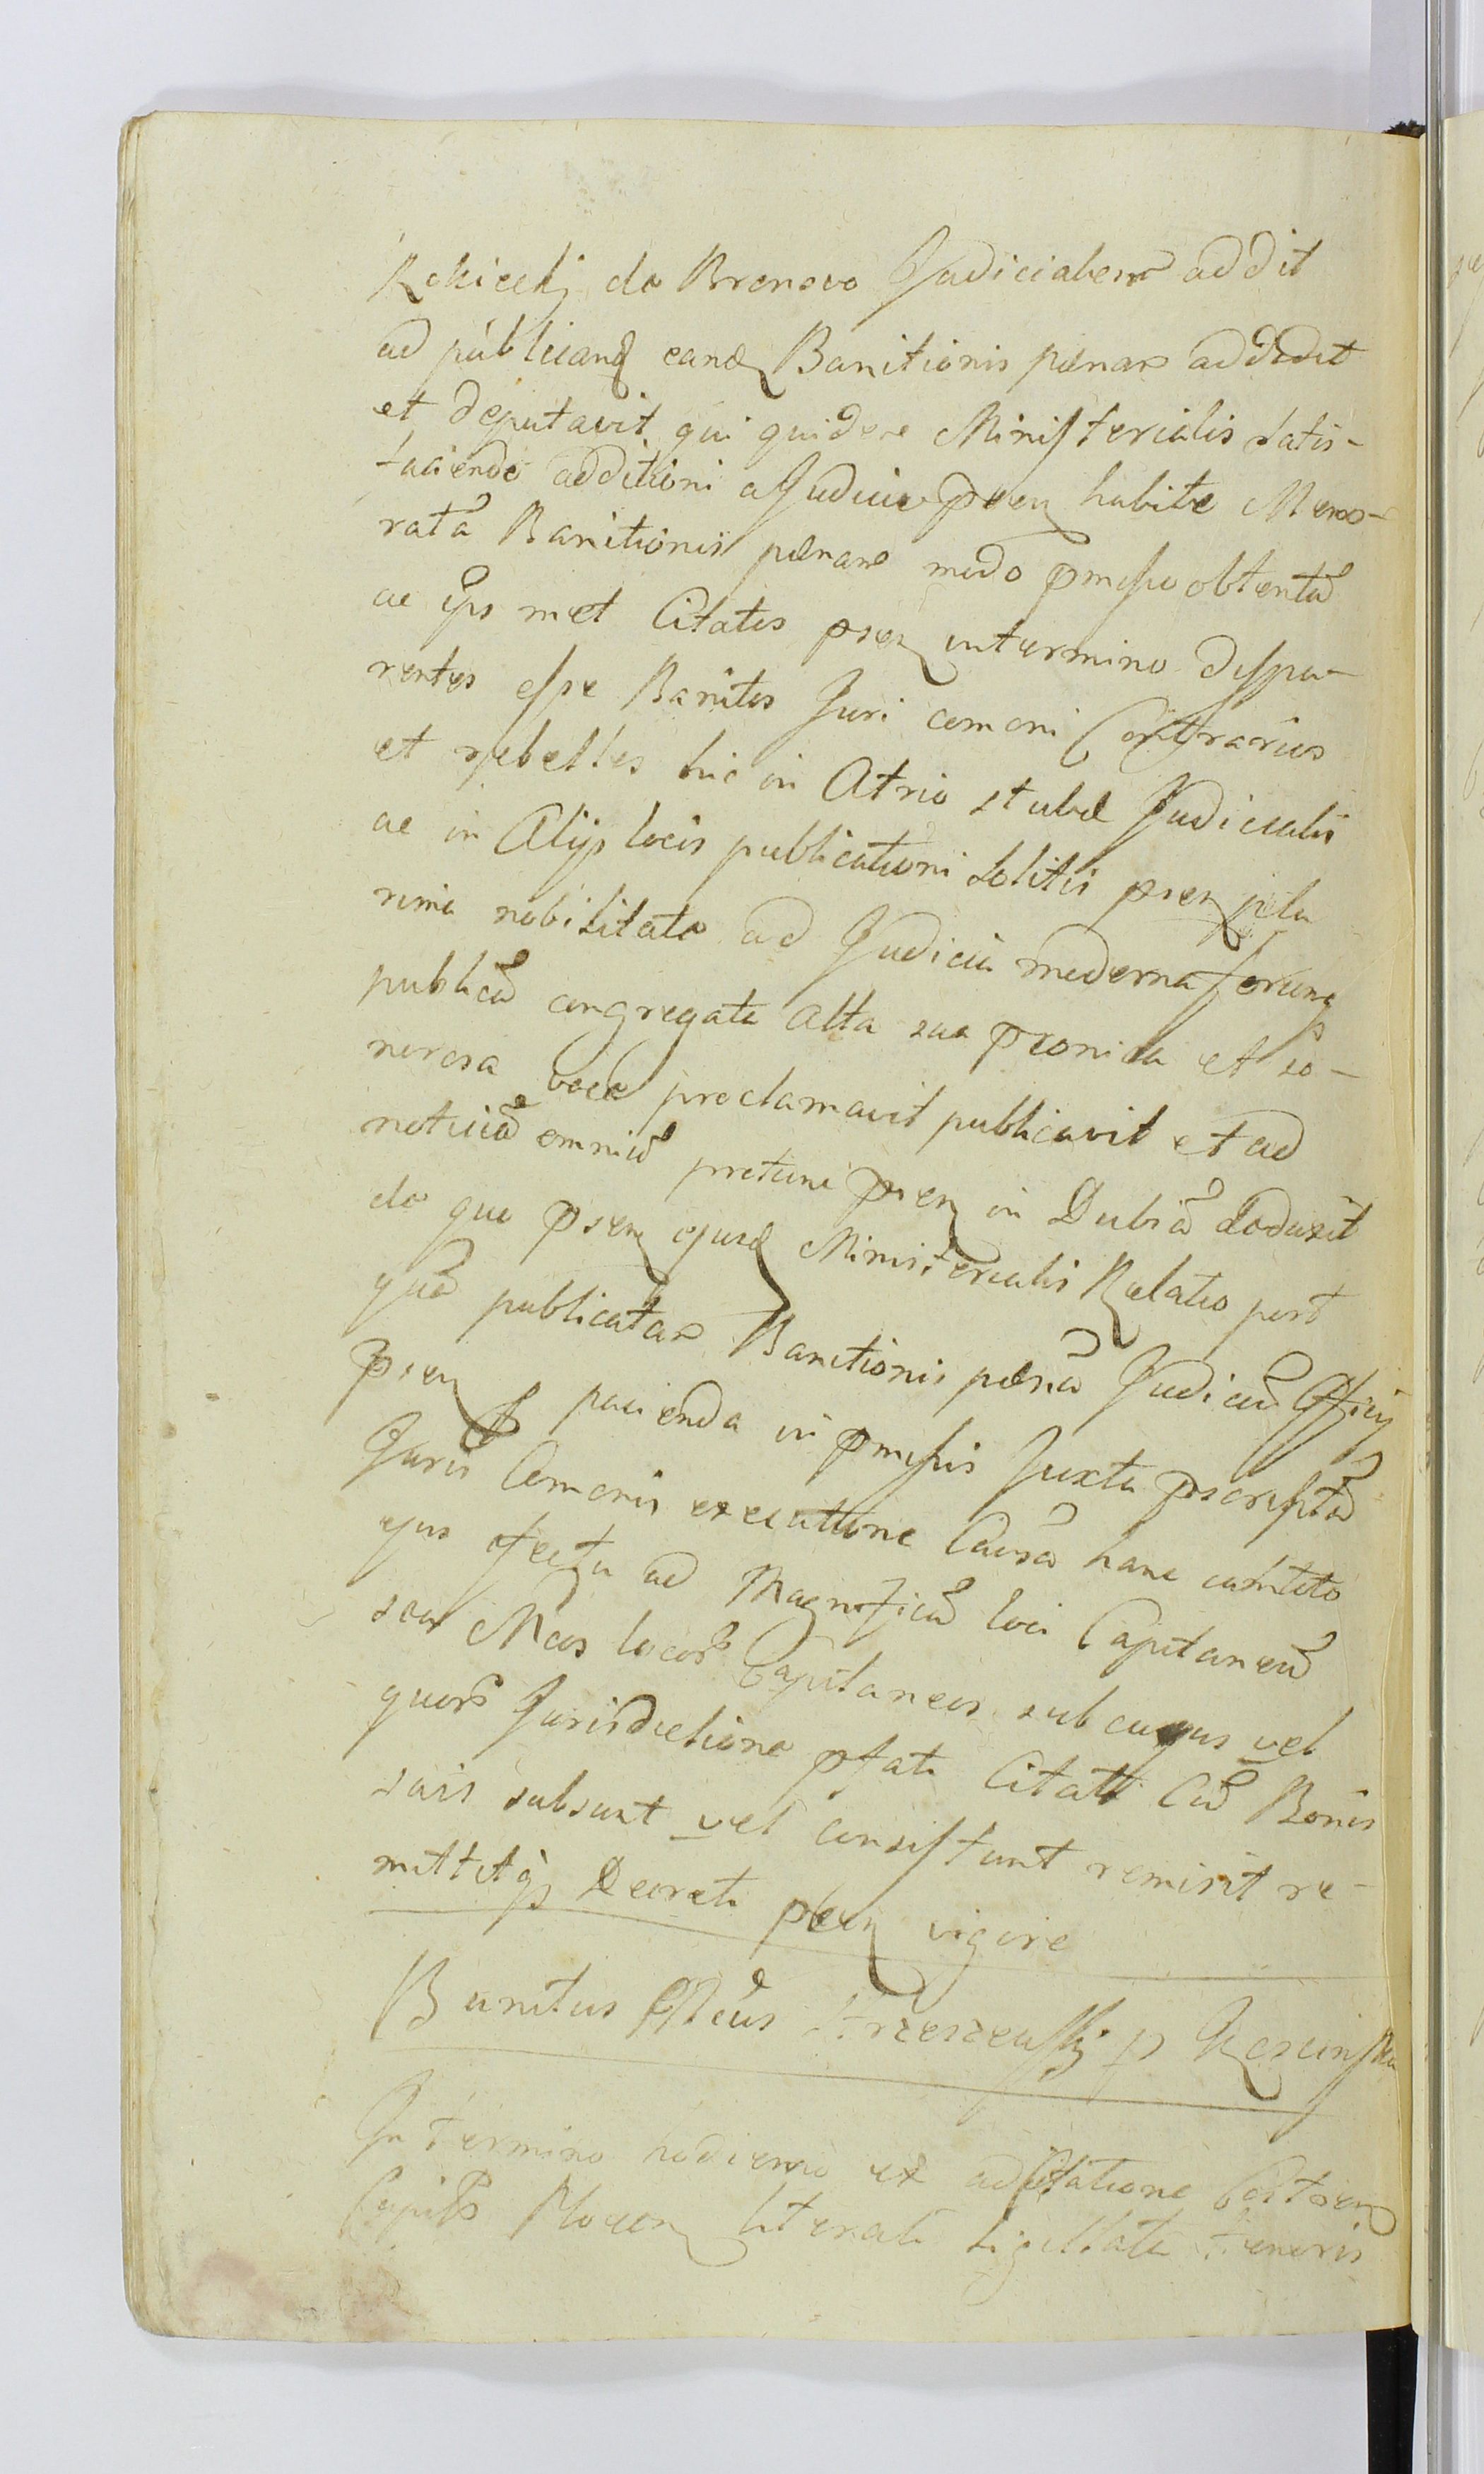 Rokicekj de Bronevo Judicialem addit
ad publicand eand Banitionis pœnam addidit
et deputavit qui quidem Ministerialis satis-
faciendo additioni a Judicio præn habitæ Memo-
ratã Banitionis pœnam modo pmisso obtentã
ac ipsmet Citatos præn in termino dispa-
rentes esse Banitos Juri comoni Contrarios
et rebelles hic in Atrio stubæ Judicialis
ac in Alijs locis publicationi solitis præn plu
rima nobilitate ad Judicia moderna forum
publicũ congregata Alta sua pronica et so-
norosa voce proclamavit publicavit et ad
noticiã omniũ protunc præn in Dubiã deduxit
de quo præn ejusd Ministerialis Relatio post
quã publicatam Banitionis pœnã Judiciũ Officij
præn p facienda in pmissis Juxta præscriptũ
Juris Comonis executione Causã hanc cum toto
ejus effectu ad Magnificũ loci Capitaneũ
seu Mcos locor Capitaneos sub cujus vel
quor Jurisdictione pfati Citati Cũ Bonis
suis subsunt vel consistunt remisit re-
mittitq Decreti præn vigore
Banitus Mcus Krzeszewsky p
In termino hodierno ex ad Citatione Castren
Capitlr Plocen literali sigillata tenoris